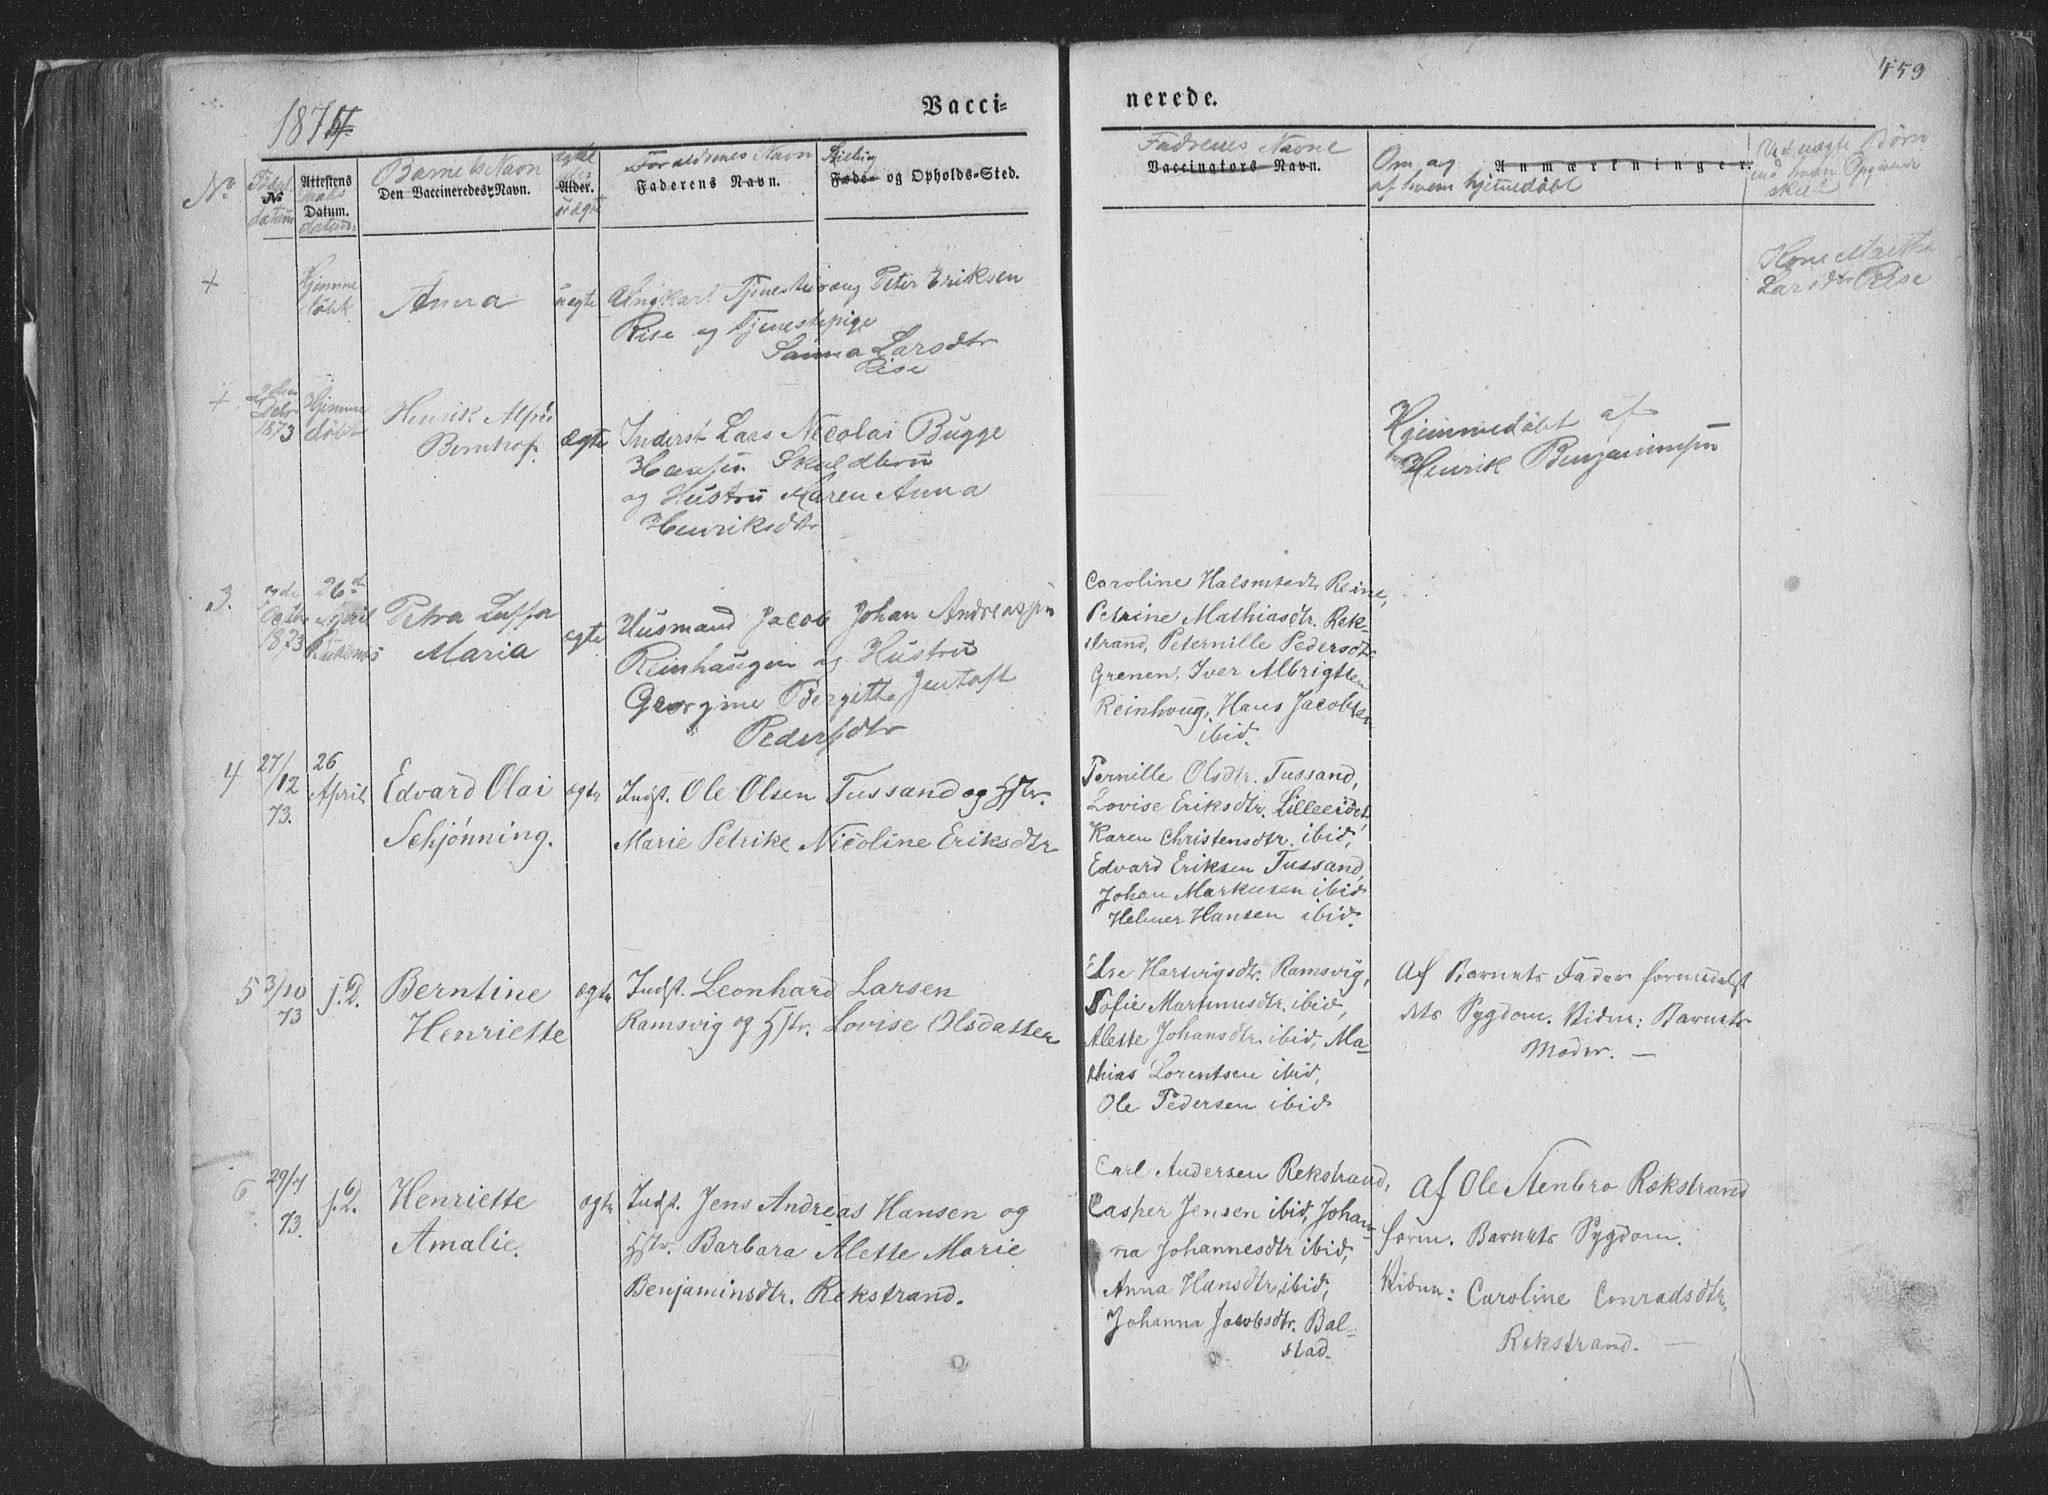 459
1874
Vacci=
nerede.
No
Fødsels
No
datum
Attestens
Daabs
Datum.
datum
Barnets Navn
Den Vaccineredes Navn.
ægte
eller
Alder.
uægte
Forældrenes Navn
Faderens Navn.
Stilling
Føde- og Opholds-Sted.
Faderenes Navne
Vaccinators Navn.
Om og
af hvem hjemmedøbt
Anmærkninger.
Ved uægte Børn
+
Hjemme
døbt
Anna
uægte
Ungkarl Tjenestedreng Peter Eriksen
Rise og Tjenestepige
Sanna Larsdtr
Rise
Kone Martha
Larsdtr Rise
+
1873
Hjemme
døbt
Henrik Alfred
Bernhof
ægte
Inderst Lars Nicolai Bugge
Hansen Skuldbru
og Hustru Maren Anna
Henriksdtr
Hjemmedøbt af
Henrik Benjaminsen
3.
1873
26de
April
Petra Luffa
Maria
ægte
Husmand Jacob Johan Andreassen
Reinhaugen og Hustru
Georgine Bergitte Jentoft
Pedersdtr
Caroline Halmstedt Reine,
Petrine Mathiasdtr. Rek-
strand, Peternille Pedersdtr
Grenen, Iver Albrigtsen
Reinhoug, Hans Jacobsen
ibid.
4
27/12
73.
26
April
Edvard Olai
Schjønning.
ægte
Indst. Ole Olsen Tussand og Hstr.
Marie Petrike Nicoline Eriksdtr
Pernille Olsdtr. Tussand,
Lovise Eriksdtr. Lilleeidet,
Karen Christensdtr. ibid,
Edvard Eriksen Tussand,
Johan Markusen ibid
Helmer Hansen ibid.
5
3/10
73
s. D.
Berntine
Henriette
ægte
Indst. Leonhard Larsen
Ramsvig og Hstr. Lovise Olsdatter
Else Hartvigsdtr. Ramsvig,
Sofie Martinusdtr. ibid,
Alette Johansdtr ibid, Ma-
thias Lorentsen ibid,
Ole Pedersen ibid
Af Barnets Fader formedelst
dets Sygdom. Vidne: Barnets
Moder. —
6
29/7
73.
s. D.
Henriette
Amalie.
ægte
Indst. Jens Andreas Hansen og
Hstr. Barbara Alette Marie
Benjaminsdtr. Rekstrand.
Carl Andersen Rekstrand,
Casper Jensen ibid, Johan-
na Johannesdtr ibid,
Anna Hansdtr, ibid,
Johanna Jacobsdtr. Bal-
stad.
Af Ole Stenbro Rekstrand
form. Barnets Sygdom.
Vidne: Caroline Conradsdtr
Rekstrand. —